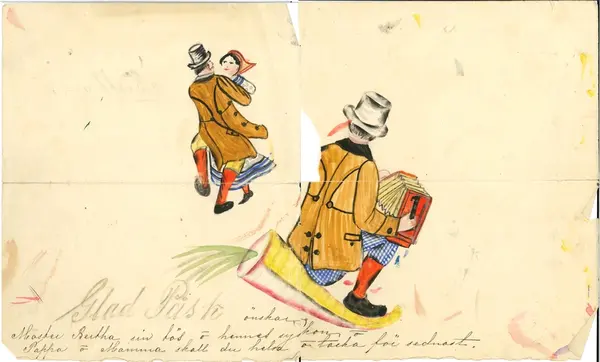 Glad Påsk önskar
Moster Bertha sin tös o hennes syskon o
Pappa o Mamma skall du helsa o tacka för sednast.